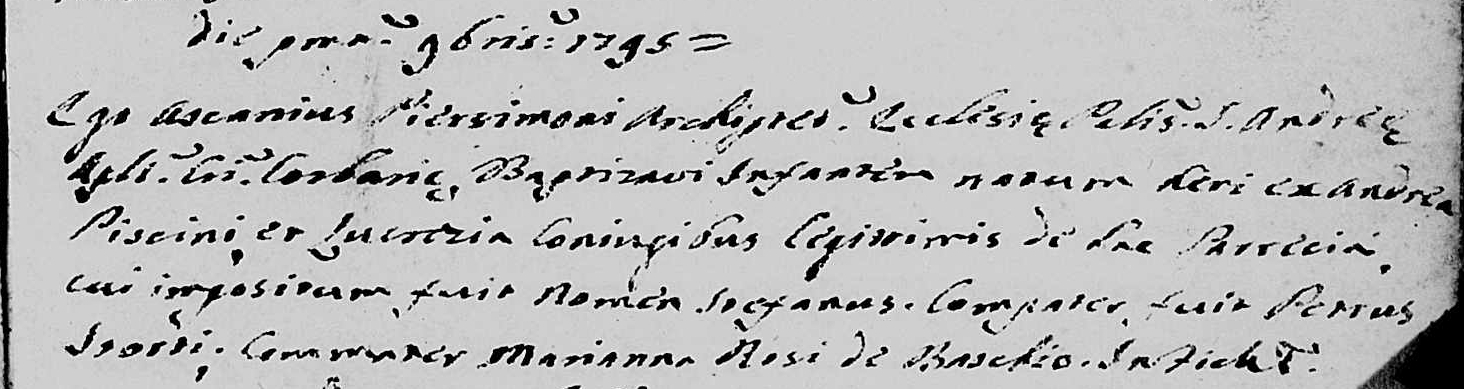 die pma 9bris: 1795 =
Ego Ascanius Piersimoni Archipres. Ecclesię Pclis. S. Andreę
Apli. Cri. Corbarię, Baptizavi Infantem natum heri ex Andrea
Piscini, et Lucrezia Coniugibus legittimis de hac Parrecia,
cui impositum fuit Nomen Stefanus. Compater fuit Petrus
Storti, Commater Marianna Rosi de Baschio. In fide